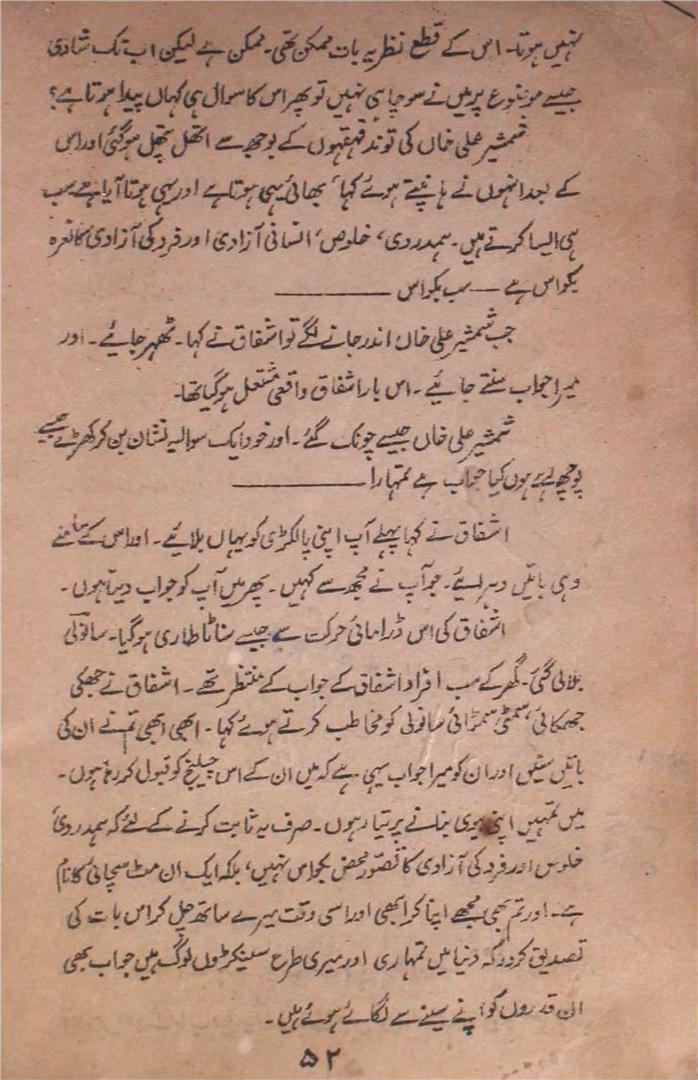 نہیں ہوتا۔ اس کے قطع نظر یہ بات ممکن تھی۔ ممکن ہے لیکن اب تک شادی
جیسے موضوع پر میں نے سوچا ہی نہیں تو پھر اس کا سوال ہی کہاں پیدا ہوتا ہے؟
شمشیر علی خاں کی توند قہقہوں کے بوجھ سے اتھل پتھل ہو گئی اور اس
کے بعد انہوں نے ہانپتے ہوئے کہا، بھائی یہی ہوتا ہے اور یہی ہوتا آیا ہے سب
ہی ایسا کرتے ہیں۔ ہمدردی، خلوص، انسانی آزادی اور فرد کی آزادی کا نعرہ
بکواس ہے — سب بکواس ———
جب شمشیر علی خاں اندر جانے لگے تو اشفاق نے کہا۔ ٹھہر جائیے۔ اور
میرا جواب سنتے جائیے۔ اس بار اشفاق واقعی مشتعل ہو گیا تھا۔
شمشیر علی خاں جیسے چونک گئے۔ اور خود ایک سوالیہ نشان بن کر کھڑے جیسے
پوچھ رہے ہوں کیا جواب ہے تمہارا ———
اشفاق نے کہا پہلے آپ اپنی پالکڑی کو یہاں بلائیے۔ اور اس کے سامنے
وہی باتیں دہرائیے۔ جو آپ نے مجھ سے کہیں۔ پھر میں آپ کو جواب دیتا ہوں۔
اشفاق کی اس ڈرامائی حرکت سے جیسے سناٹا طاری ہو گیا۔ سانولی
بلائی گئی۔ گھر کے سب افراد اشفاق کے جواب کے منتظر تھے۔ اشفاق نے جھجکی
جھجکائی، سمٹی سمٹائی سانولی کو مخاطب کرتے ہوئے کہا۔ ابھی ابھی تم نے ان کی
باتیں سنیں اور ان کو میرا جواب یہی ہے کہ میں ان کے اس چیلنج کو قبول کر رہا ہوں۔
میں تمہیں اپنی بیوی بنانے پر تیار ہوں۔ صرف یہ ثابت کرنے کے لئے کہ ہمدردی
خلوص اور فرد کی آزادی کا تصّور محض بکواس نہیں، بلکہ ایک ان مٹ سچائی کا نام
ہے۔ اور تم بھی مجھے اپنا کر ابھی اور اسی وقت میرے ساتھ چل کر اس بات کی
تصدیق کر دو کہ دنیا میں تمہاری اور میری طرح سینکڑوں لوگ ہیں جو اب بھی
ان قدروں کو اپنے سینے سے لگائے ہوئے ہیں۔
۵۲